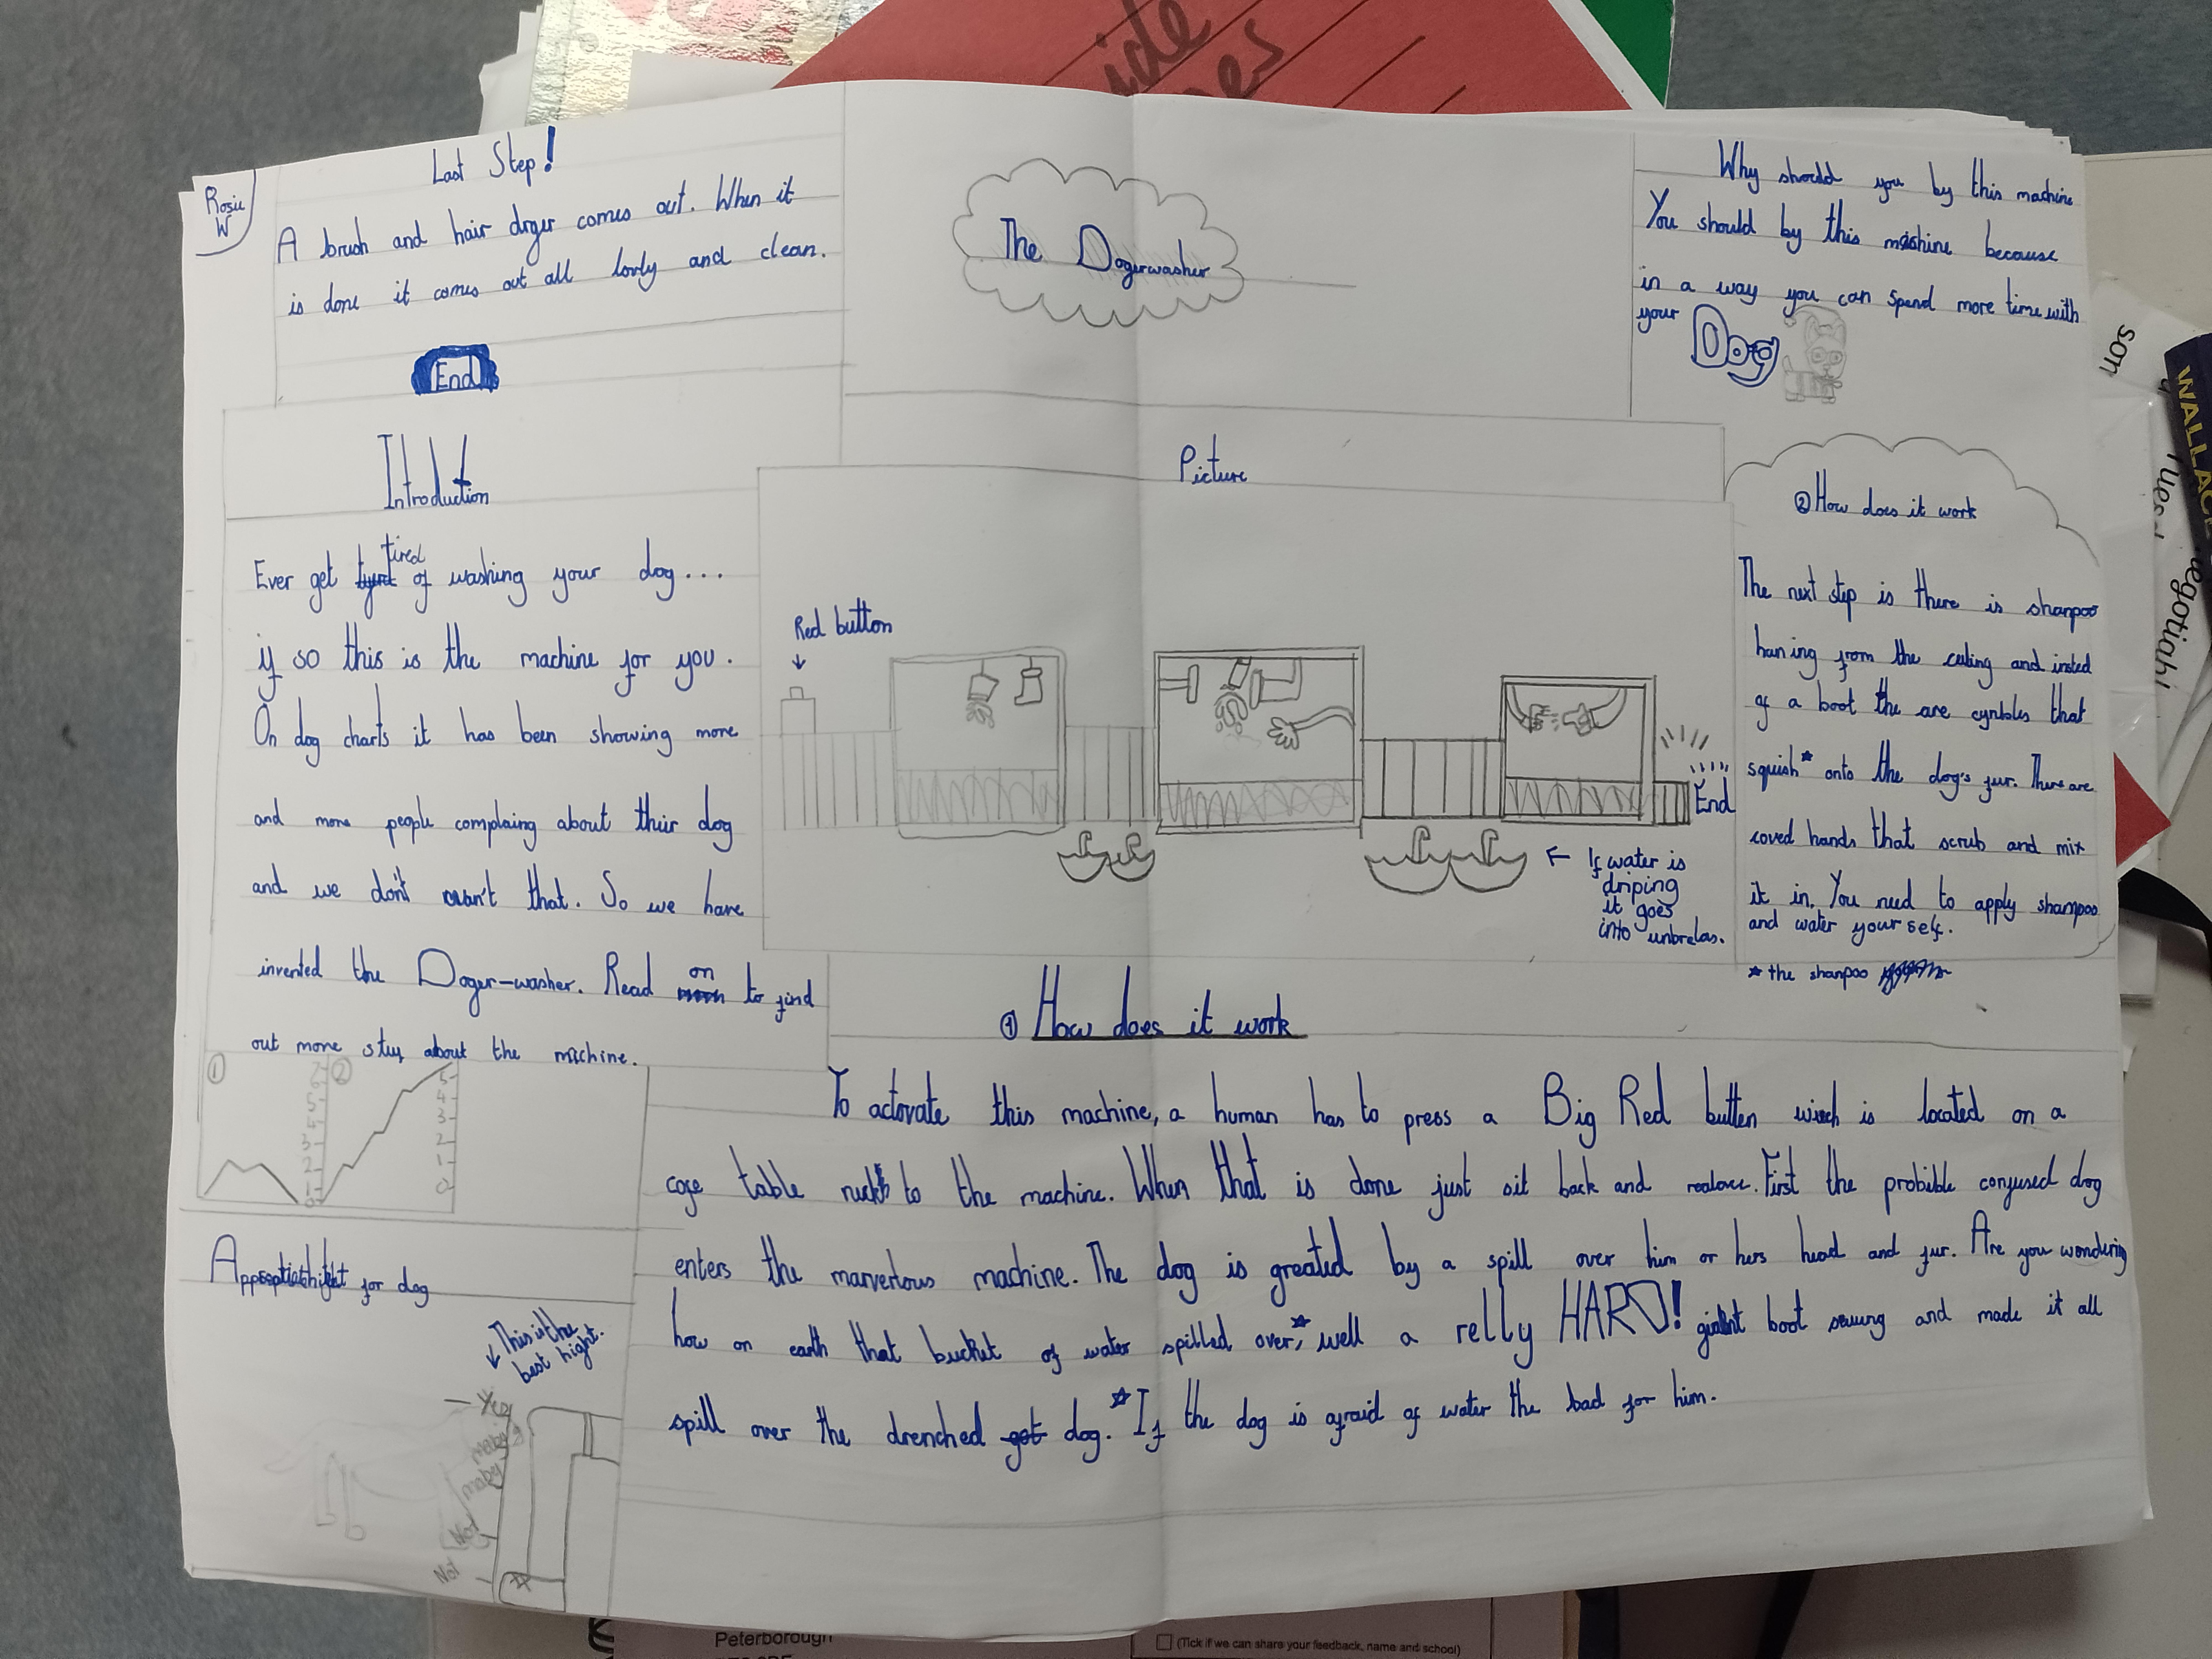 Rosie
W
Last Step!
A brush and hair dryer comes out. When it
is done it comes out all lovly and clean.
End
The Dogerwasher
Why should you by this machine
You should by this mashine because
in a way you can spend more time with
your Dog
Introduction
Ever get tired of washing your dog...
if so this is the machine for you.
On dog charts it has been showing more
and more people complaing about their dog
and we don't wan't that. So we have
invented the Doger-washer. Read on to find
out more stuf about the machine.
① ②
7
6
5
4
3
2
1
0
5
4
3
2
1
0
Picture
Red button
End
← If water is
driping
it goes
into unbrelas.
② How does it work
The next step is there is shanpoo
haning from the celing and insted
of a boot the are cynboles that
squish* onto the dog's fur. There are
coved hands that scrub and mix
it in. You need to apply shampoo
and water your self.
* the shanpoo
① How does it work
To actovate this machine, a human has to press a Big Red butten wich is located on a
cofe table next to the machine. When that is done just sit back and realax. First the probible confused dog
enters the marverlous machine. The dog is greated by a spill over him or hers head and fur. Are you wondering
how on earth that bucket of water spilled over,* well a relly HARD! giant boot swung and made it all
spill over the drenched dog. *If the dog is afraid of water the bad for him.
for dog
This is the
best hight.
Yes
mabey
mabey
Not
Not
son
WALLAC
negotiati
ide
es
Peterborough
(Tick if we can share your feedback, name and school)